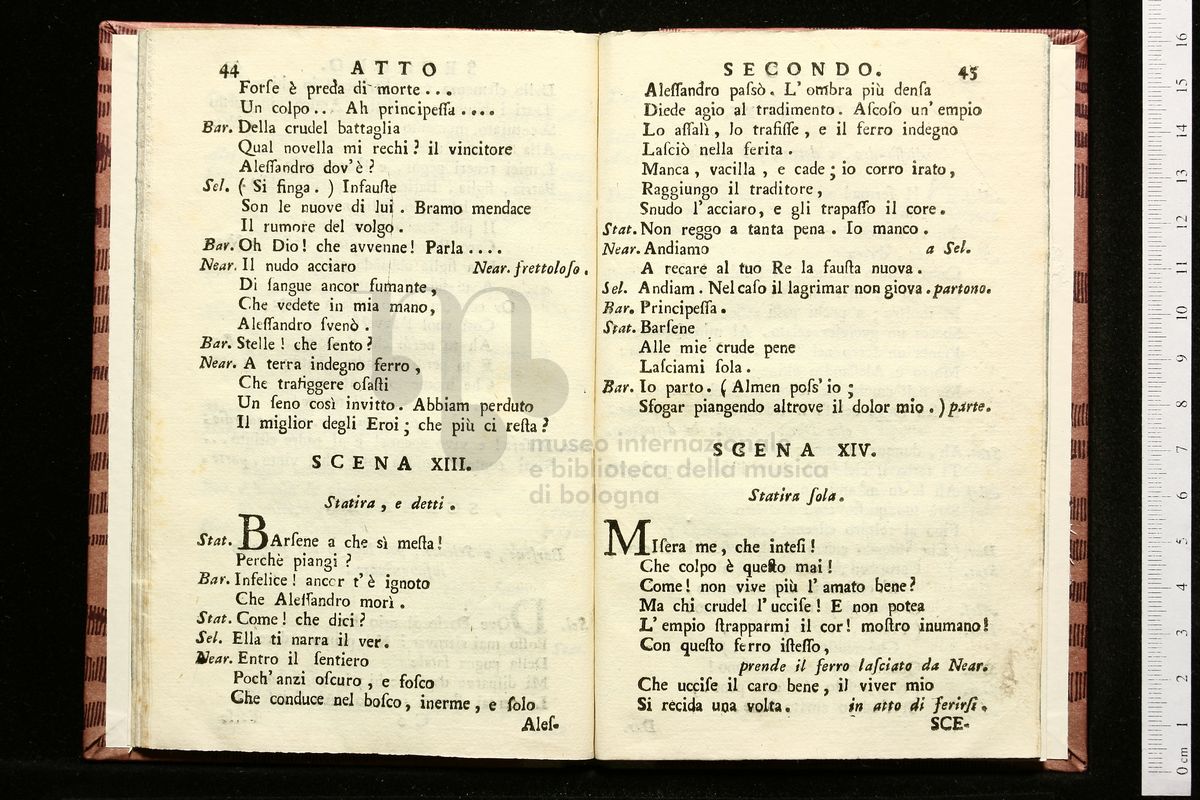 44 ATTO
Forſe è preda di morte . . .
Un colpo . . . Ah principeſſa . . . .
Bar. Della crudel battaglia
Qual novella mi rechi ? il vincitore
Aleſſandro dov'è ?
Sel. ( Si finga . ) Infauſte
Son le nuove di lui . Bramo mendace
Il rumore del volgo .
Bar. Oh Dio ! che avvenne ! Parla . . . .
Near. Il nudo acciaro Near. frettoloſo .
Di ſangue ancor fumante ,
Che vedete in mia mano ,
Aleſſandro ſvenò .
Bar. Stelle ! che ſento ?
Near. A terra indegno ferro ,
Che trafiggere oſaſti
Un ſeno così invitto . Abbiam perduto
Il miglior degli Eroi ; che più ci reſta ?
SCENA XIII.
Statira , e detti .
Stat. BArſene a che sì meſta !
Perchè piangi ?
Bar. Infelice ! ancor t'è ignoto
Che Aleſſandro morì .
Stat. Come ! che dici ?
Sel. Ella ti narra il ver .
Near. Entro il ſentiero
Poch' anzi oſcuro , e foſco
Che conduce nel boſco , inerme , e ſolo
Aleſ-
SECONDO. 45
Aleſſandro paſsò . L' ombra più denſa
Diede agio al tradimento . Aſcoſo un' empio
Lo aſſalì , lo trafiſſe , e il ferro indegno
Laſciò nella ferita .
Manca , vacilla , e cade ; io corro irato ,
Raggiungo il traditore ,
Snudo l' acciaro , e gli trapaſſo il core .
Stat. Non reggo a tanta pena . Io manco .
Near. Andiamo a Sel.
A recare al tuo Re la fauſta nuova .
Sel. Andiam . Nel caſo il lagrimar non giova . partono.
Bar. Principeſſa .
Stat. Barſene
Alle mie crude pene
Laſciami ſola .
Bar. Io parto . ( Almen poſs' io ;
Sfogar piangendo altrove il dolor mio . ) parte.
SCENA XIV.
Statira ſola .
MIſera me , che inteſi !
Che colpo è queſto mai !
Come ! non vive più l' amato bene ?
Ma chi crudel l' ucciſe ! E non potea
L' empio ſtrapparmi il cor ! moſtro inumano !
Con queſto ferro iſteſſo ,
prende il ferro laſciato da Near.
Che ucciſe il caro bene , il viver mio
Si recida una volta . in atto di ferirſi .
SCE-
museo internazionale
e biblioteca della musica
di bologna
0 cm 1 2 3 4 5 6 7 8 9 10 11 12 13 14 15 16